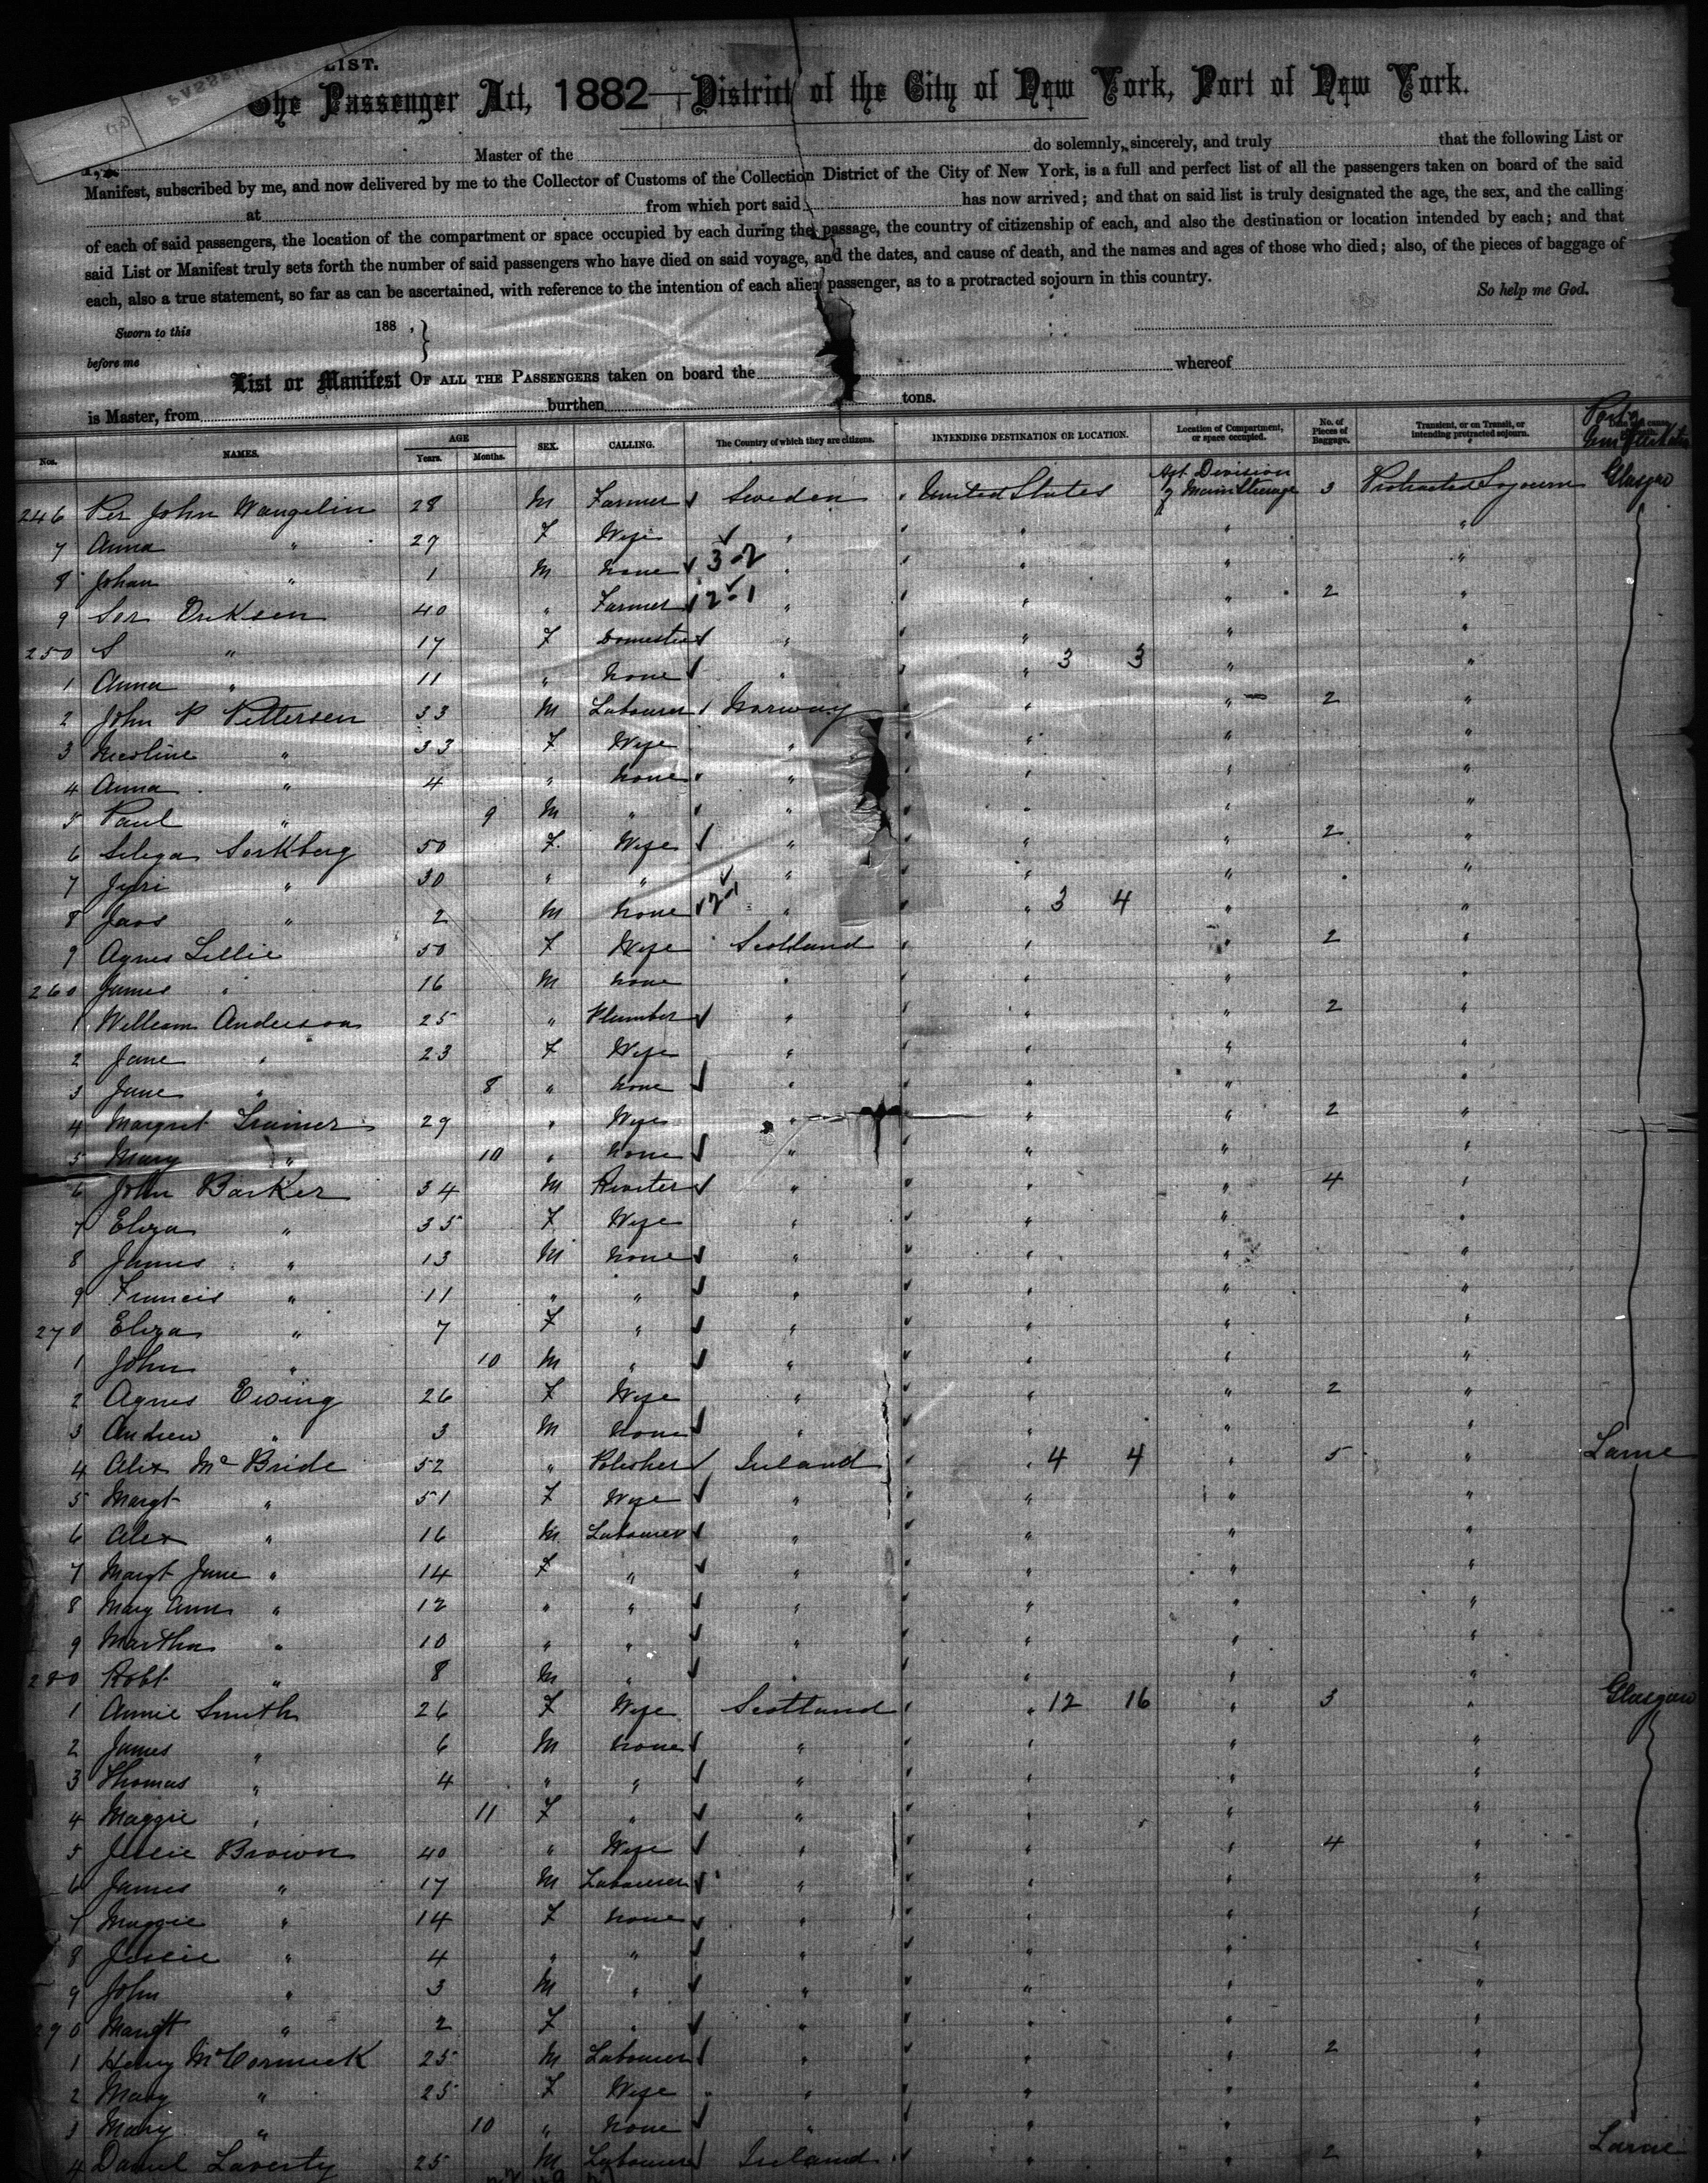 LIST.
The Passenger Act, 1882—District of the City of New York, Port of New York.
I, Master of the do solemnly, sincerely, and truly that the following List or
Manifest, subscribed by me, and now delivered by me to the Collector of Customs of the Collection District of the City of New York, is a full and perfect list of all the passengers taken on board of the said
at from which port said has now arrived; and that on said list is truly designated the age, the sex, and the calling
of each of said passengers, the location of the compartment or space occupied by each during the passage, the country of citizenship of each, and also the destination or location intended by each; and that
said List or Manifest truly sets forth the number of said passengers who have died on said voyage, and the dates, and cause of death, and the names and ages of those who died; also, of the pieces of baggage of
each, also a true statement, so far as can be ascertained, with reference to the intention of each alien passenger, as to a protracted sojourn in this country. So help me God.
Sworn to this 188 ,
before me
List or Manifest OF ALL THE PASSENGERS taken on board the whereof
is Master, from burthen tons.
Nos. NAMES. AGE Years. Months. SEX. CALLING. The Country of which they are citizens. INTENDING DESTINATION OR LOCATION. Location of Compartment, or space occupied. No. of Pieces of Baggage. Transient, or on Transit, or intending protracted sojourn. Port of
246 Per John Wangelin 28 M Farmer Sweden United States Aft Division of Main Steerage 3 Protracted Sojourn Glasgow
7 Anna " 27 F Wife " " " "
8 Johan " 1 M None 3-2 " " " "
9 Sor Eriksen 40 " Farmer 2-1 " " " 2 "
250 S " 17 F Domestic " " " "
1 Anna " 11 " None " " 3 3 " "
2 John P Pettersen 33 M Labourer Norway " " 2 "
3 Nicoline " 33 F Wife " " " "
4 Anna " 4 " None " " " "
5 Paul " 9 M " " " " "
6 Sorkberg 50 F Wife " " " 2 "
7 Jyri " 30 " " " " " "
8 " 2 M None 2-1 " " 3 4 " "
9 Agnes Lillie 50 F Wife Scotland " " 2 "
260 James " 16 M None " " " "
1 William Anderson 25 " Plumber " " " 2 "
2 Jane " 23 F Wife " " " "
3 Jane " 8 " None " " " "
4 Margret Trainer 29 " Wife " " " 2 "
5 Mary " 10 " None " " " "
6 John Barker 34 M Riveter " " " 4 "
7 Eliza " 35 F Wife " " " "
8 James " 13 M None " " " "
9 Francis " 11 " " " " " "
270 Eliza " 7 F " " " " "
1 John " 10 M " " " " "
2 Agnes Ewing 26 F Wife " " " 2 "
3 Andrew " 3 M None " " " "
4 Alex McBride 52 " Polisher Ireland " 4 4 " 5 " Larne
5 Margt " 51 F Wife " " " "
6 Alex " 16 M Labourer " " " "
7 Margt Jane " 14 F " " " " "
8 Mary Ann " 12 " " " " " "
9 Martha " 10 " " " " " "
280 Robt " 8 M " " " " "
1 Annie Smith 26 F Wife Scotland " 12 16 " 3 " Glasgow
2 James " 6 M None " " " "
3 Thomas " 4 " " " " " "
4 Maggie " 11 F " " " " "
5 Jessie Brown 40 " Wife " " " 4 "
6 James " 17 M Labourer " " " "
7 Maggie " 14 F None " " " "
8 Jessie " 4 " " " " " "
9 John " 3 M " " " " "
290 Margt " 2 F " " " " "
1 Henry McCormick 25 M Labourer " " " 2 "
2 Mary " 25 F Wife " " " "
3 Mary " 10 " None " " " "
4 Daniel Laverty 25 M Labourer Ireland " " 2 " Larne